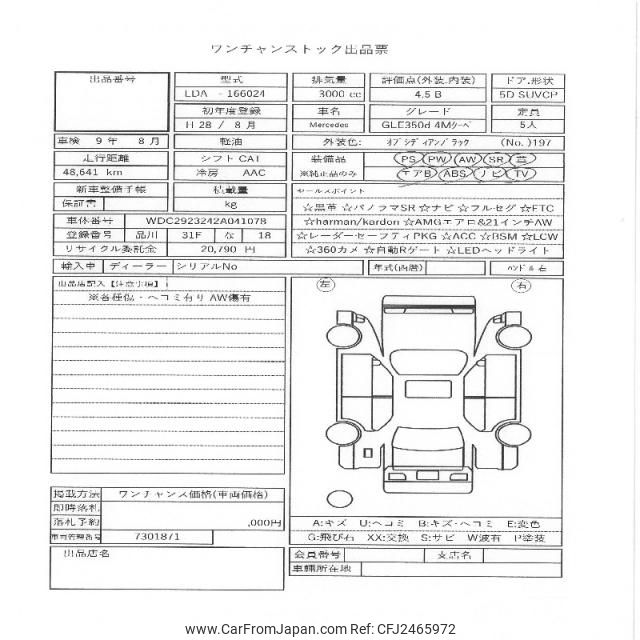 ワンチャンストック出品票
出品番号
型式
LDA - 166024
初年度登録
H 28 / 8 月
排気量
3000 cc
車名
Mercedes
評価点(外装,内装)
4.5 B
グレード
GLE350d 4Mクーペ
ドア,形状
5D SUVCP
定員
5人
車検 9 年 8 月
軽油
外装色: オブシディアンブラック (No.)197
走行距離
48,641 km
シフト CA1
冷房 AAC
装備品
※純正品のみ
PS PW AW SR 革
エアB ABS ナビ TV
新車整備手帳
保証書
積載量
kg
セールスポイント
☆黒革 ☆パノラマSR ☆ナビ ☆フルセグ ☆ETC
☆harman/kardon ☆AMGエアロ&21インチAW
☆レーダーセーフティPKG ☆ACC ☆BSM ☆LCW
☆360カメ ☆自動Rゲート ☆LEDヘッドライト
車体番号 WDC2923242A041078
登録番号 品川 31F な 18
リサイクル委託金 20,790 円
輸入車 ディーラー シリアルNo 年式(西暦) ハンドル 右
出品店記入【注意事項】
※各種傷・ヘコミ有り AW傷有
左 右
掲載方法 ワンチャンス価格(車両価格)
即時落札
落札予約 ,000円
車両管理番号 7301871
A:キズ U:ヘコミ B:キズ・ヘコミ E:変色
G:飛び石 XX:交換 S:サビ W波有 P塗装
出品店名
会員番号 支店名
車輌所在地
www.CarFromJapan.com Ref: CFJ2465972